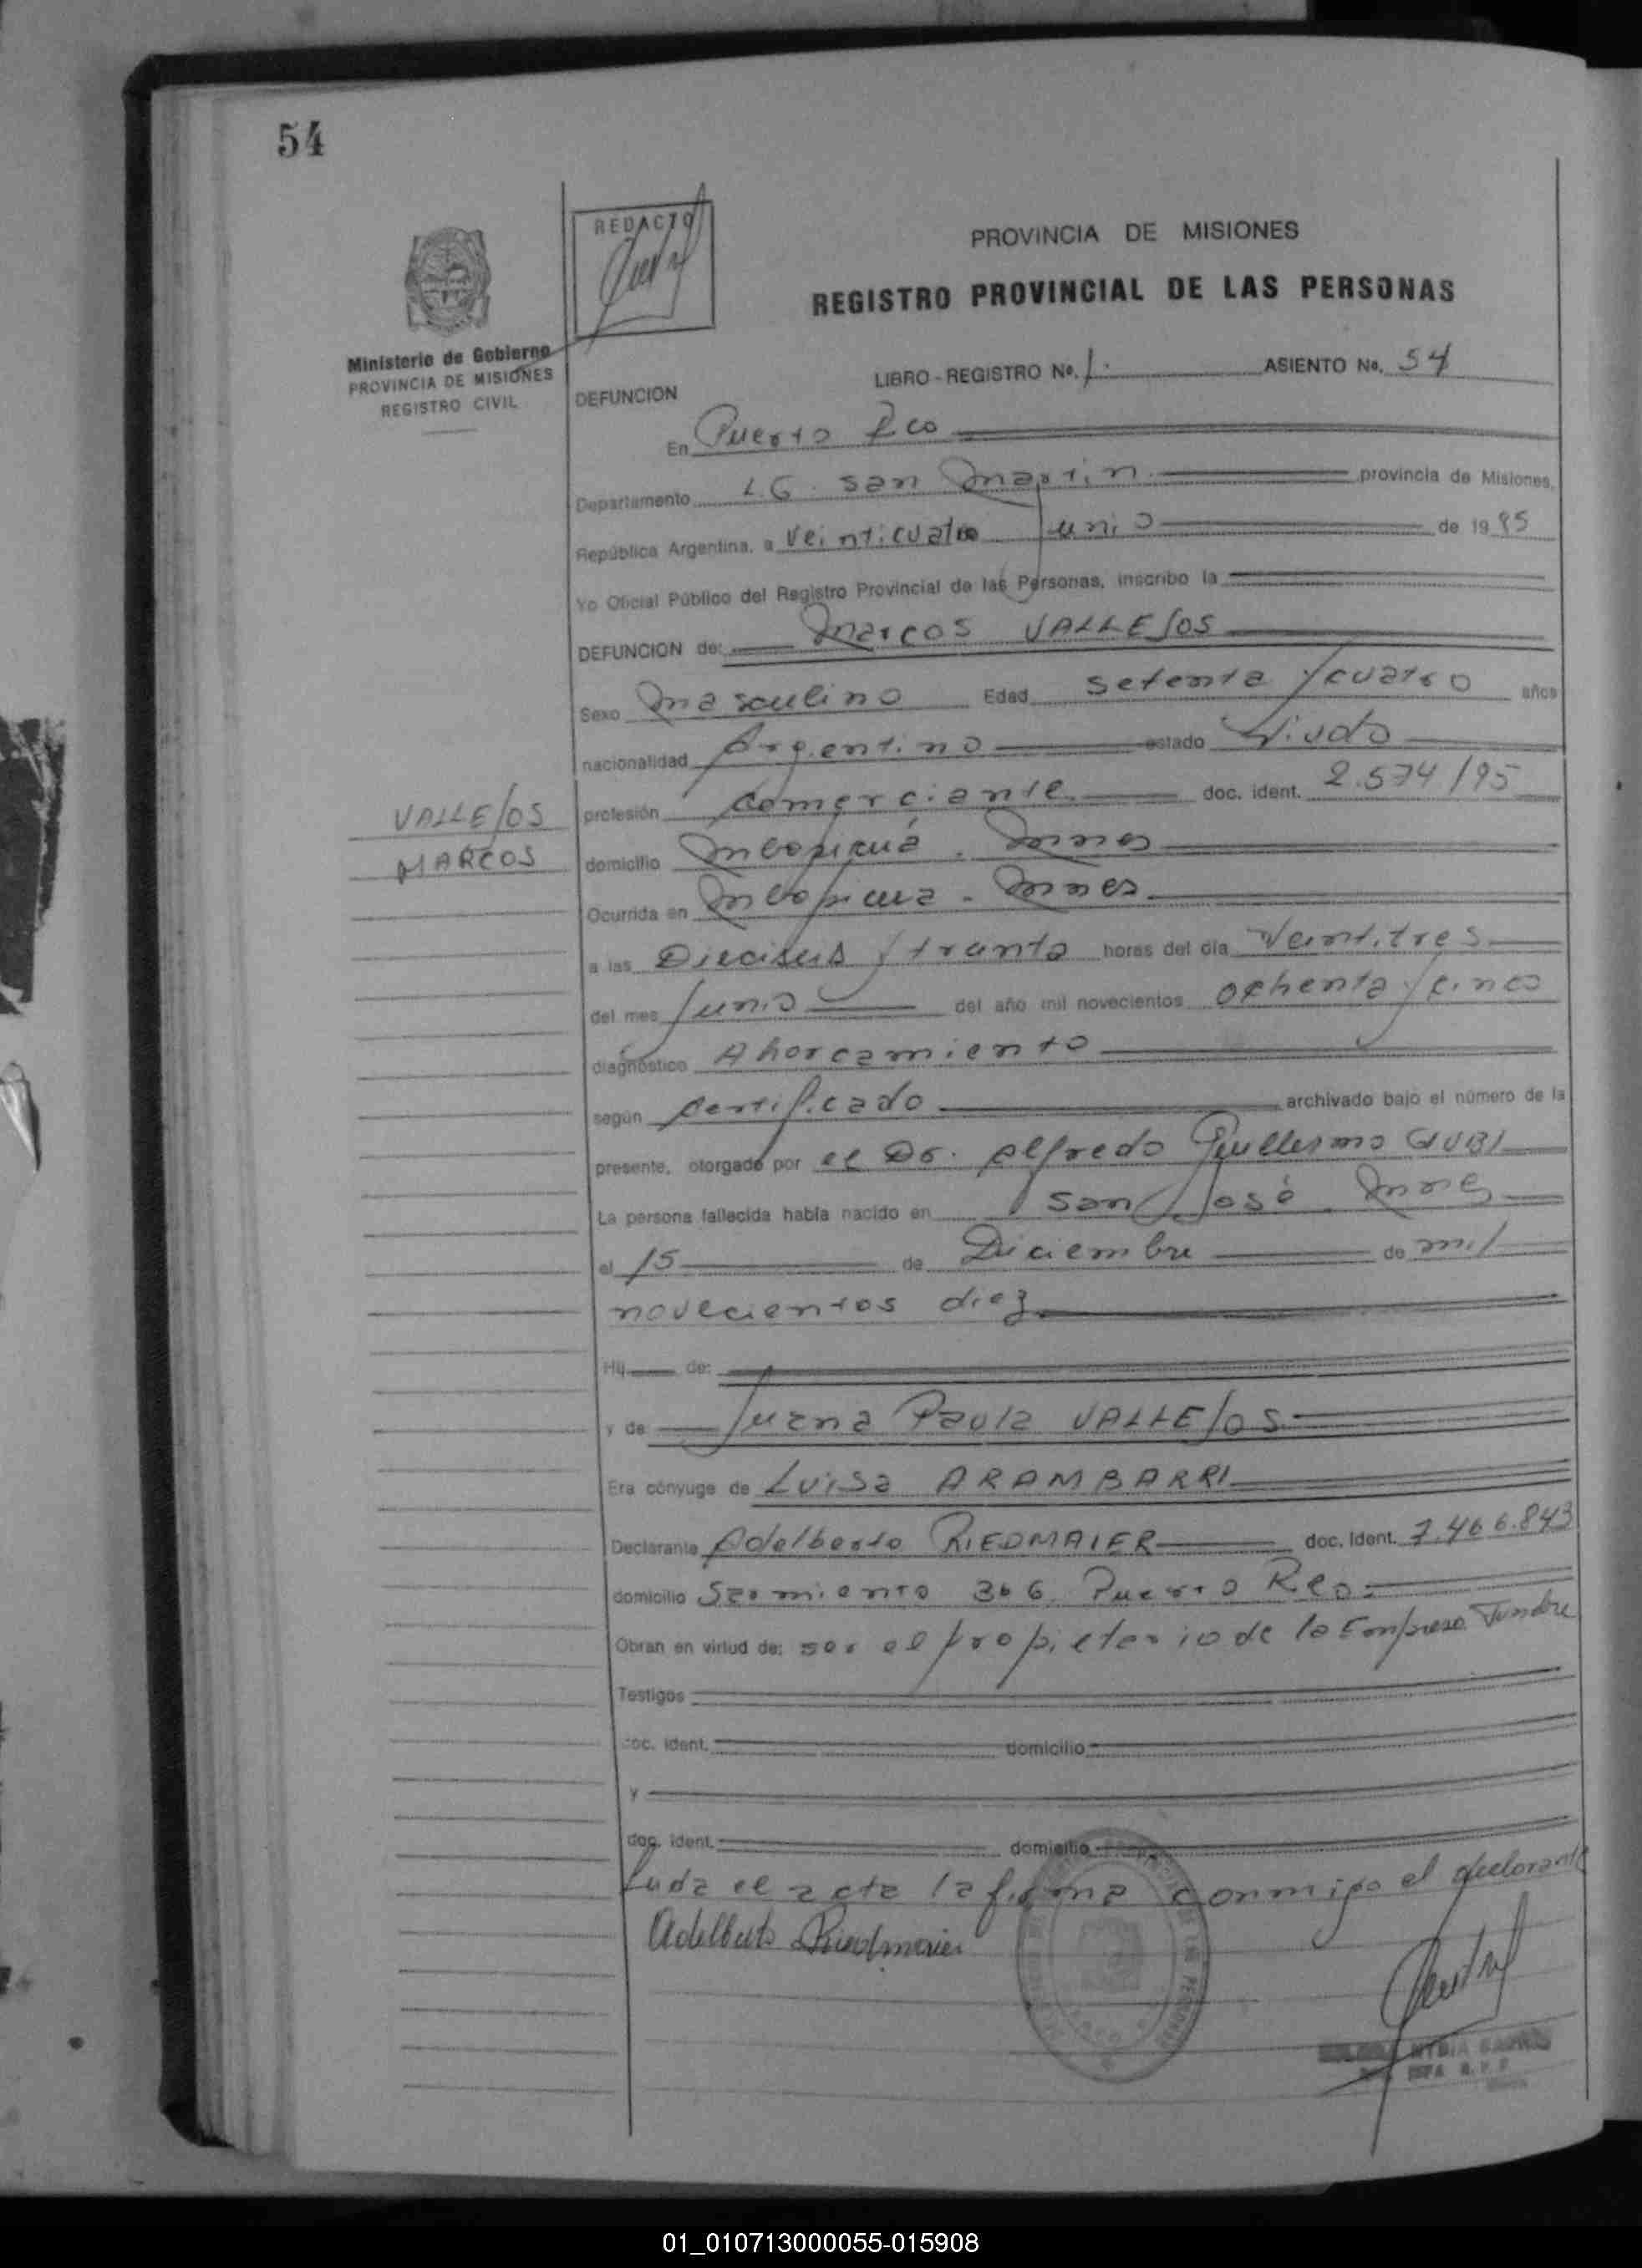 54
REDACTO
PROVINCIA DE MISIONES
REGISTRO PROVINCIAL DE LAS PERSONAS
Ministerio de Gobierno
PROVINCIA DE MISIONES
REGISTRO CIVIL
LIBRO - REGISTRO No. 1. ASIENTO No. 54
DEFUNCION
En Puerto Rco
Departamento L.G. san Martin provincia de Misiones,
República Argentina, a Veinticuatro Junio de 1985
Yo Oficial Público del Registro Provincial de las Personas, inscribo la
DEFUNCION de: Marcos VALLEJOS
Sexo Masculino Edad setenta y cuatro años
nacionalidad Argentino estado Viudo
VALLEJOS
MARCOS
profesión comerciante doc. ident. 2.574/95
domicilio Mbopicuá. Mnes
Ocurrida en Mbopicua - Mnes
a las Dieciseis y treinta horas del día Veintitres
del mes Junio del año mil novecientos ochenta y cinco
diagnóstico Ahorcamiento
según certificado archivado bajo el número de la
presente, otorgado por el Dr. Alfredo Guillermo GUBI
La persona fallecida había nacido en San José. Mnes
el 15 de Diciembre de mil
novecientos diez
Hij de:
y de Juana Paula VALLEJOS
Era cónyuge de Luisa ARAMBARRI
Declarante Adelberto RIEDMAIER doc. Ident. 7.466.843
domicilio Sarmiento 366. Puerto Rco.
Obran en virtud de: ser el propietario de la Empresa Funebre
Testigos
doc. ident. domicilio
y
doc. ident. domicilio
el acta la firma conmigo el declarante
Adelberto Riedmaier
01_010713000055-015908